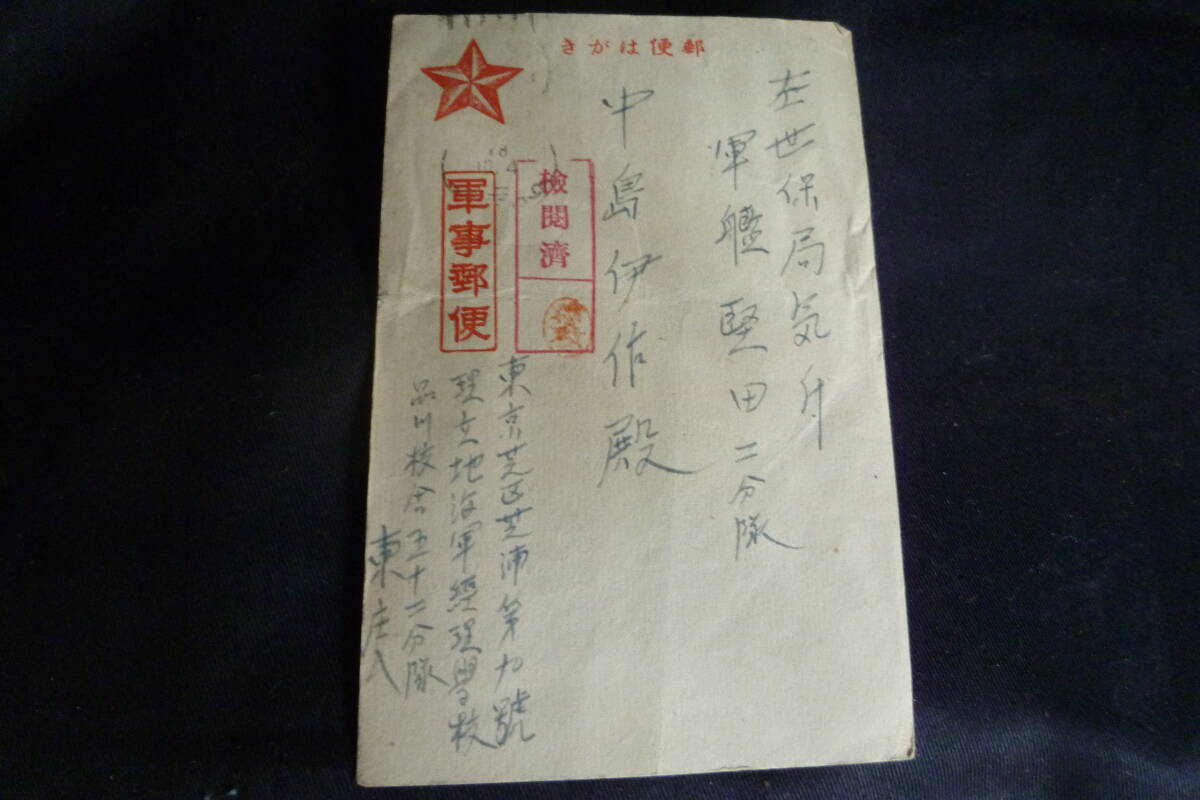 きがは便郵
佐世保局気付
軍艦堅田二分隊
中島伊佐殿
檢閲濟
軍事郵便
東京芝区芝浦第九號
埋立地海軍經理學校
品川校舎五十二分隊
東庄八